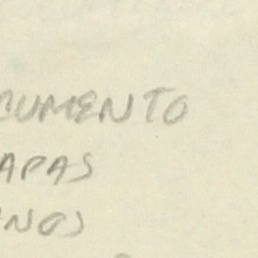 CUMENTO
APAS
NOS